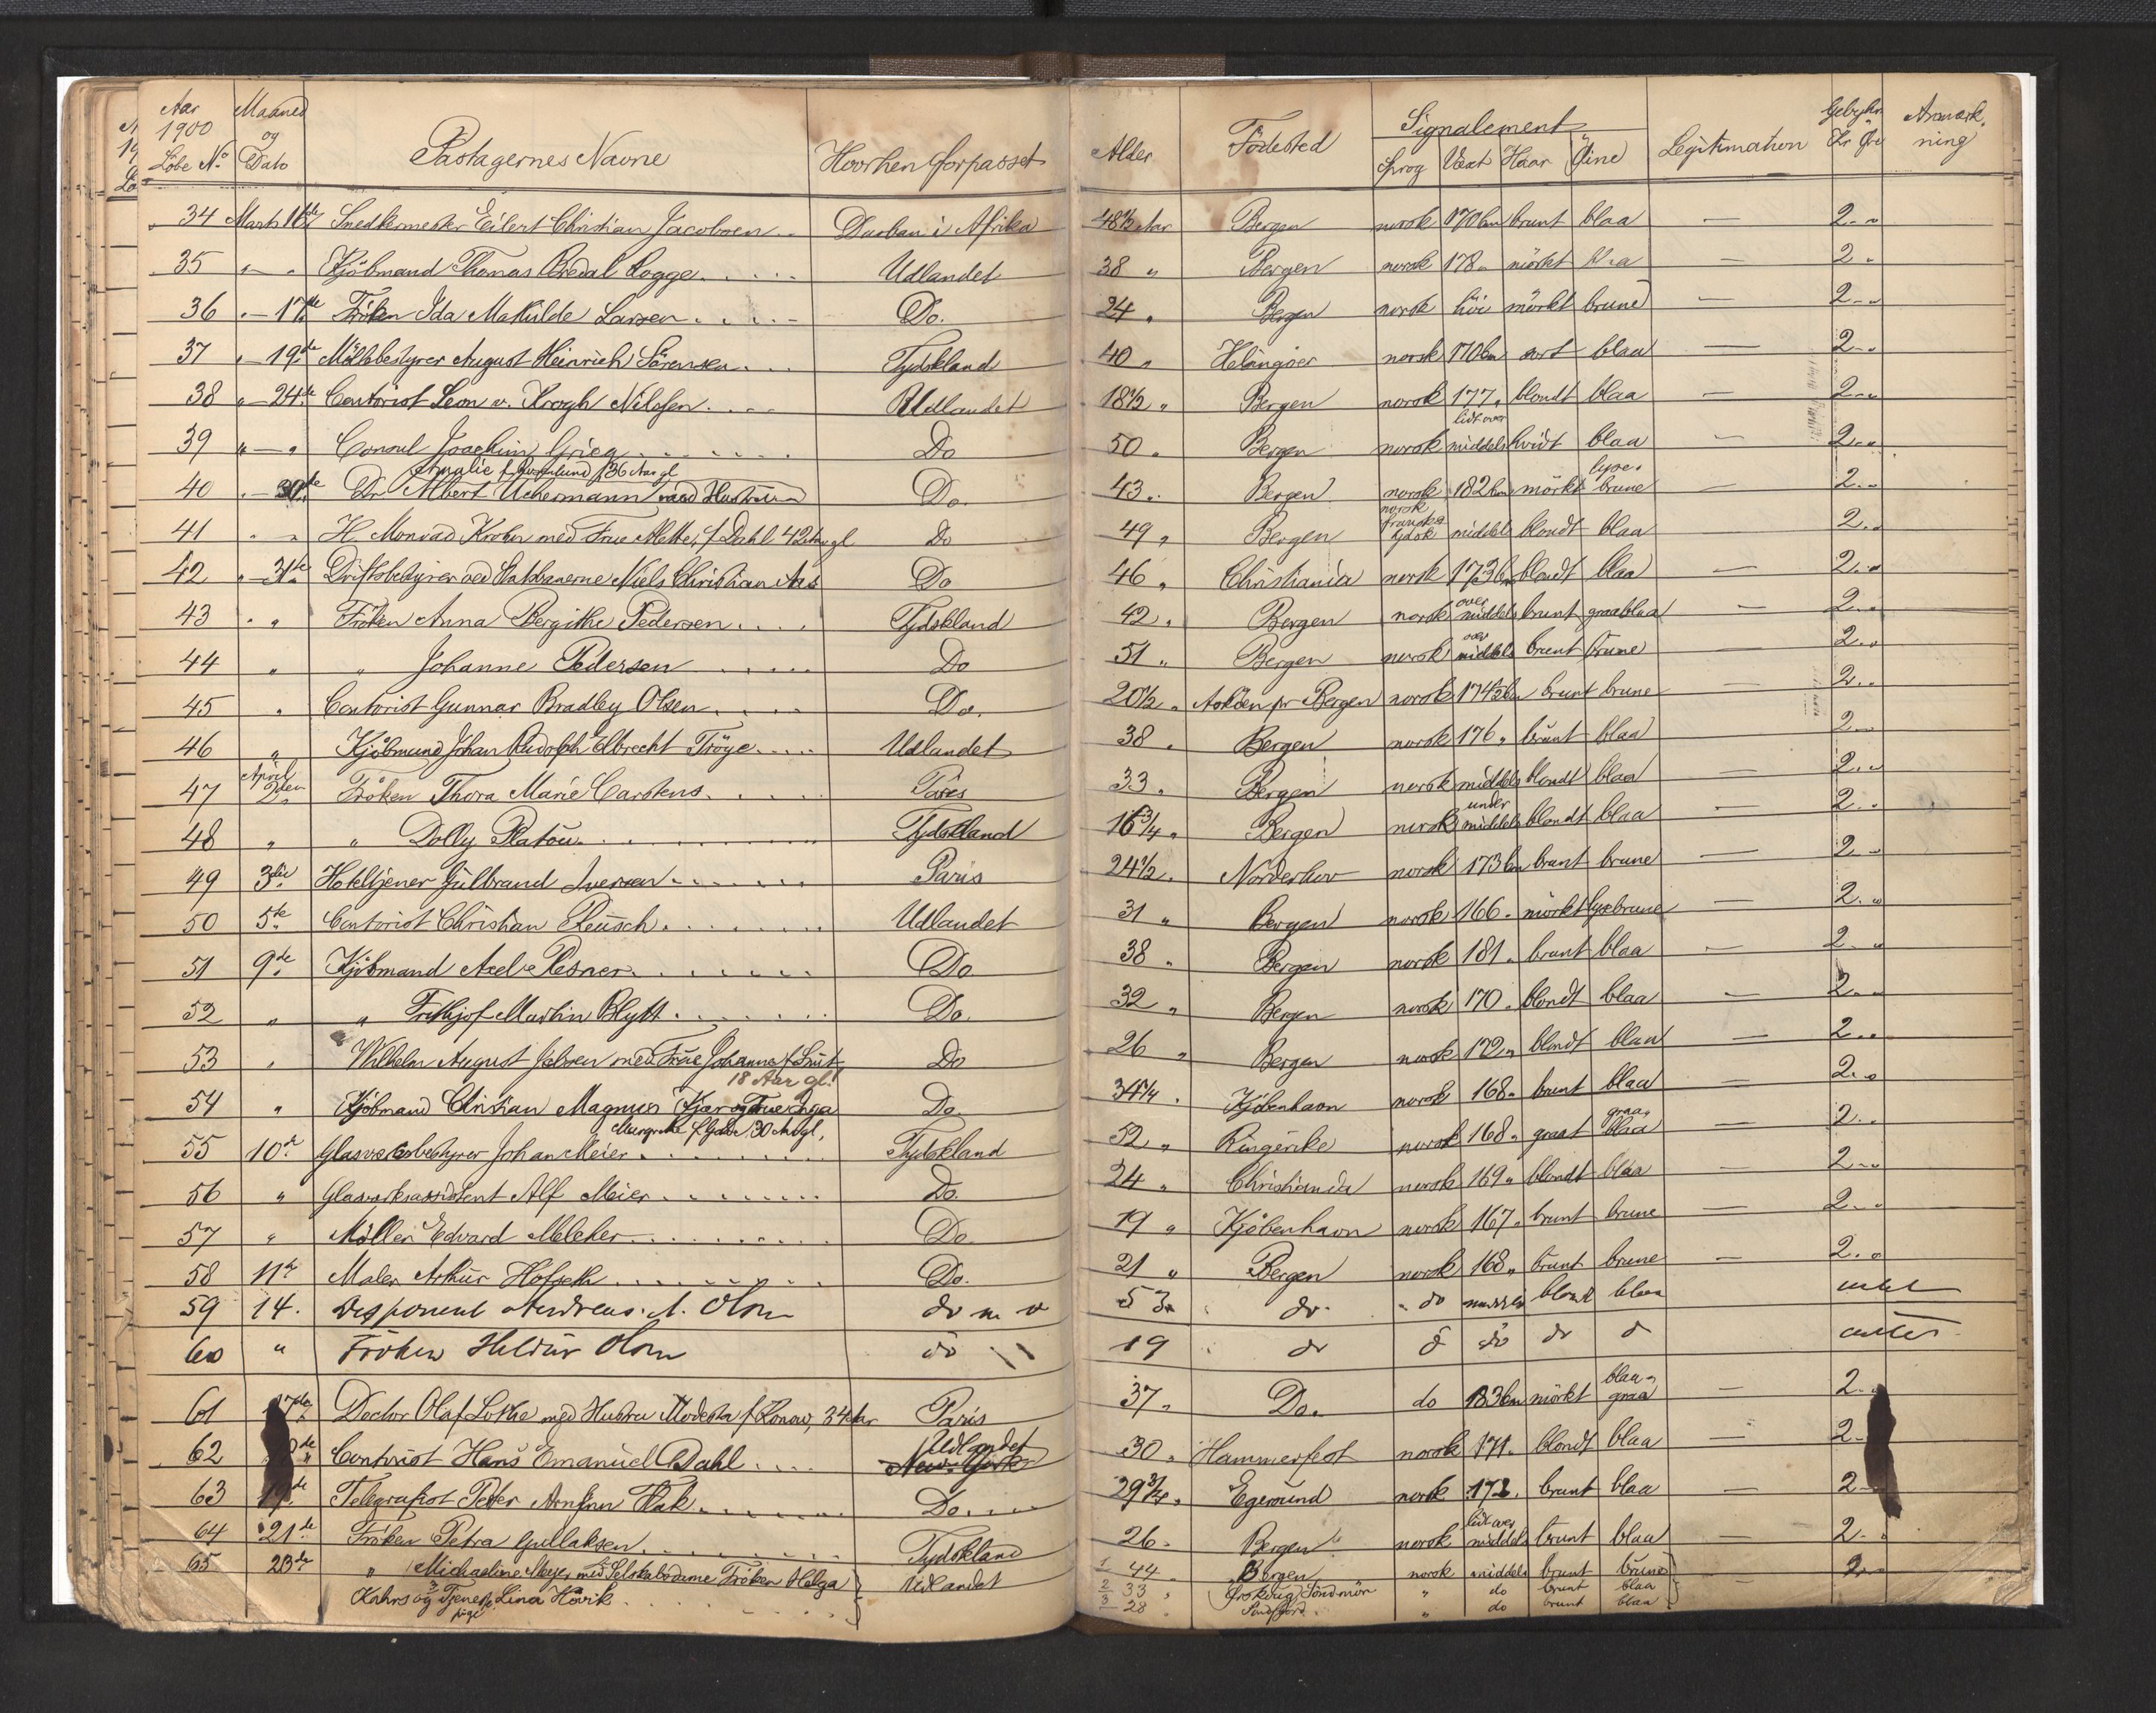 Aar 1900 Løbe No. Maaned og Dato Pastagernes Navne Hvorhen forpasset Alder Födested Signalement Sprog Vext Haar Öine Legitimation Gebyhr Kr Öre Anmærkning
34 Marts 16de Snedkermester Eilert Christian Jacobsen Durban i Afrika 48 1/2 Aar Bergen norsk 170 cm brunt blaa — 2 "
35 " — " Kjöbmand Thomas Bredal Rogge Udlandet 38 " Bergen norsk 178 " mörkt blaa — 2 "
36 " — 17de Fröken Ida Mathilde Larsen Do. 24 " Bergen norsk höi mörkt brune — 2 "
37 " — 19de Möllebestyrer August Heinrich Sörensen Tydskland 40 " Helsingöer norsk 170 cm sort blaa — 2 "
38 " — 24de Contorist Leon v. Krogh Nilssen Udlandet 18 1/2 " Bergen norsk 177 " blondt blaa — 2 "
39 " — " Consul Joachim Grieg Do 50 " Bergen norsk lidt over middels hvidt blaa — 2 "
40 " — 30te Dr Albert Uchermann med Hustru Amalie 36 Aar gl Do. 43 " Bergen norsk 182 cm mörkt lyse brune — 2 "
41 " " H. Monrad Krohn med Frue Mette, f Dahl 42 Aar gl Do 49 " Bergen norsk fransk tydsk middels blondt blaa 2 "
42 " — 31te Driftsbestyrer ved Statsbanerne Niels Christian Do 46 " Christiania norsk 173 cm blondt blaa — 2 "
43 " " Fröken Anna Bergithe Pedersen Tydskland 42 " Bergen norsk over middels brunt graablaa — 2 "
44 " " Johanne Pedersen Do 51 " Bergen norsk over middels brunt brune — 2 "
45 " Contorist Gunnar Bradley Olsen Do. 20 1/2 " Asköen pr Bergen norsk 174 1/2 cm brunt brune — 2 "
46 " Kjöbmand Johan Rudolph Elbrecht Tröye Udlandet 38 " Bergen norsk 176 " brunt blaa 2 "
47 April 2den Fröken Thora Marie Carstens Paris 33 " Bergen norsk middels blondt blaa — 2 "
48 " " Dolly Platou Tydskland 16 3/4 " Bergen norsk under middels blondt blaa — 2 "
49 3die Hoteltjener Gulbrand Iversen Paris 24 1/2 " Norderhov norsk 173 cm brunt brune — 2 "
50 5te Contorist Christian Reusch Udlandet 31 " Bergen norsk 166 " mörkt lysebrune — 2 "
51 9de Kjöbmand Axel Pesner Do 38 " Bergen norsk 181 " brunt blaa — 2 "
52 " " Frithjof Martin Blytt Do. 32 " Bergen norsk 170 " blondt blaa — 2 "
53 " Wilhelm August Jebsen med Frue Johanne f Smit 18 Aar gl. Do 26 " Bergen norsk 172 " blondt blaa — 2 "
54 " Kjöbmand Christian Magnus Kjær og Frue Inga Margrethe f Gade 30 Aar gl. Do. 34 1/4 " Kjöbenhavn norsk 168 " brunt blaa — 2 "
55 10de Glasværksbestyrer Johan Meier Tydskland 52 " Ringerike norsk 168 " graat graa blaa — 2 "
56 " Glasværksassistent Alf Meier Do. 24 " Christiania norsk 169 " blondt blaa — 2 "
57 " Möller Edvard Meleher Do. 19 " Kjöbenhavn norsk 167 " brunt brune — 2 "
58 11te Maler Arthur Hofseth Do. 21 " Bergen norsk 168 " brunt brune — 2 "
59 14. Disponent Andreas A. Olsen do 53 do do middels blondt blaa
60 " Fröken Hildur Olsen do 19 do d do do d
61 17de Doctor Olaf Lothe med Hustru Modesta f Konow, 34 Aar Paris 37 " Do. do 183 cm mörkt blaa graa — 2 "
62 Contorist Hans Emanuel Dahl Udlandet New York 30 " Hammerfest norsk 171 " blondt blaa — 2
63 19de Telegrafist Peter Arnfinn Hak Do 29 3/4 " Egersund norsk 172 " brunt blaa — 2
64 21de Fröken Petra Gullaksen Tydskland 26 " Bergen norsk lidt over middels brunt blaa — 2 "
65 23de " Michaeline Meyer med 2 Selskabsdame Fröken Helga Udlandet 1 44 " Bergen norsk middels brunt brune — 2 "
Kahrs og 3 Tjenestepige Lina Hövik 2 33 " Örskoug Söndmör " do brunt blaa
3 28 " Söndfjord " do brunt blaa